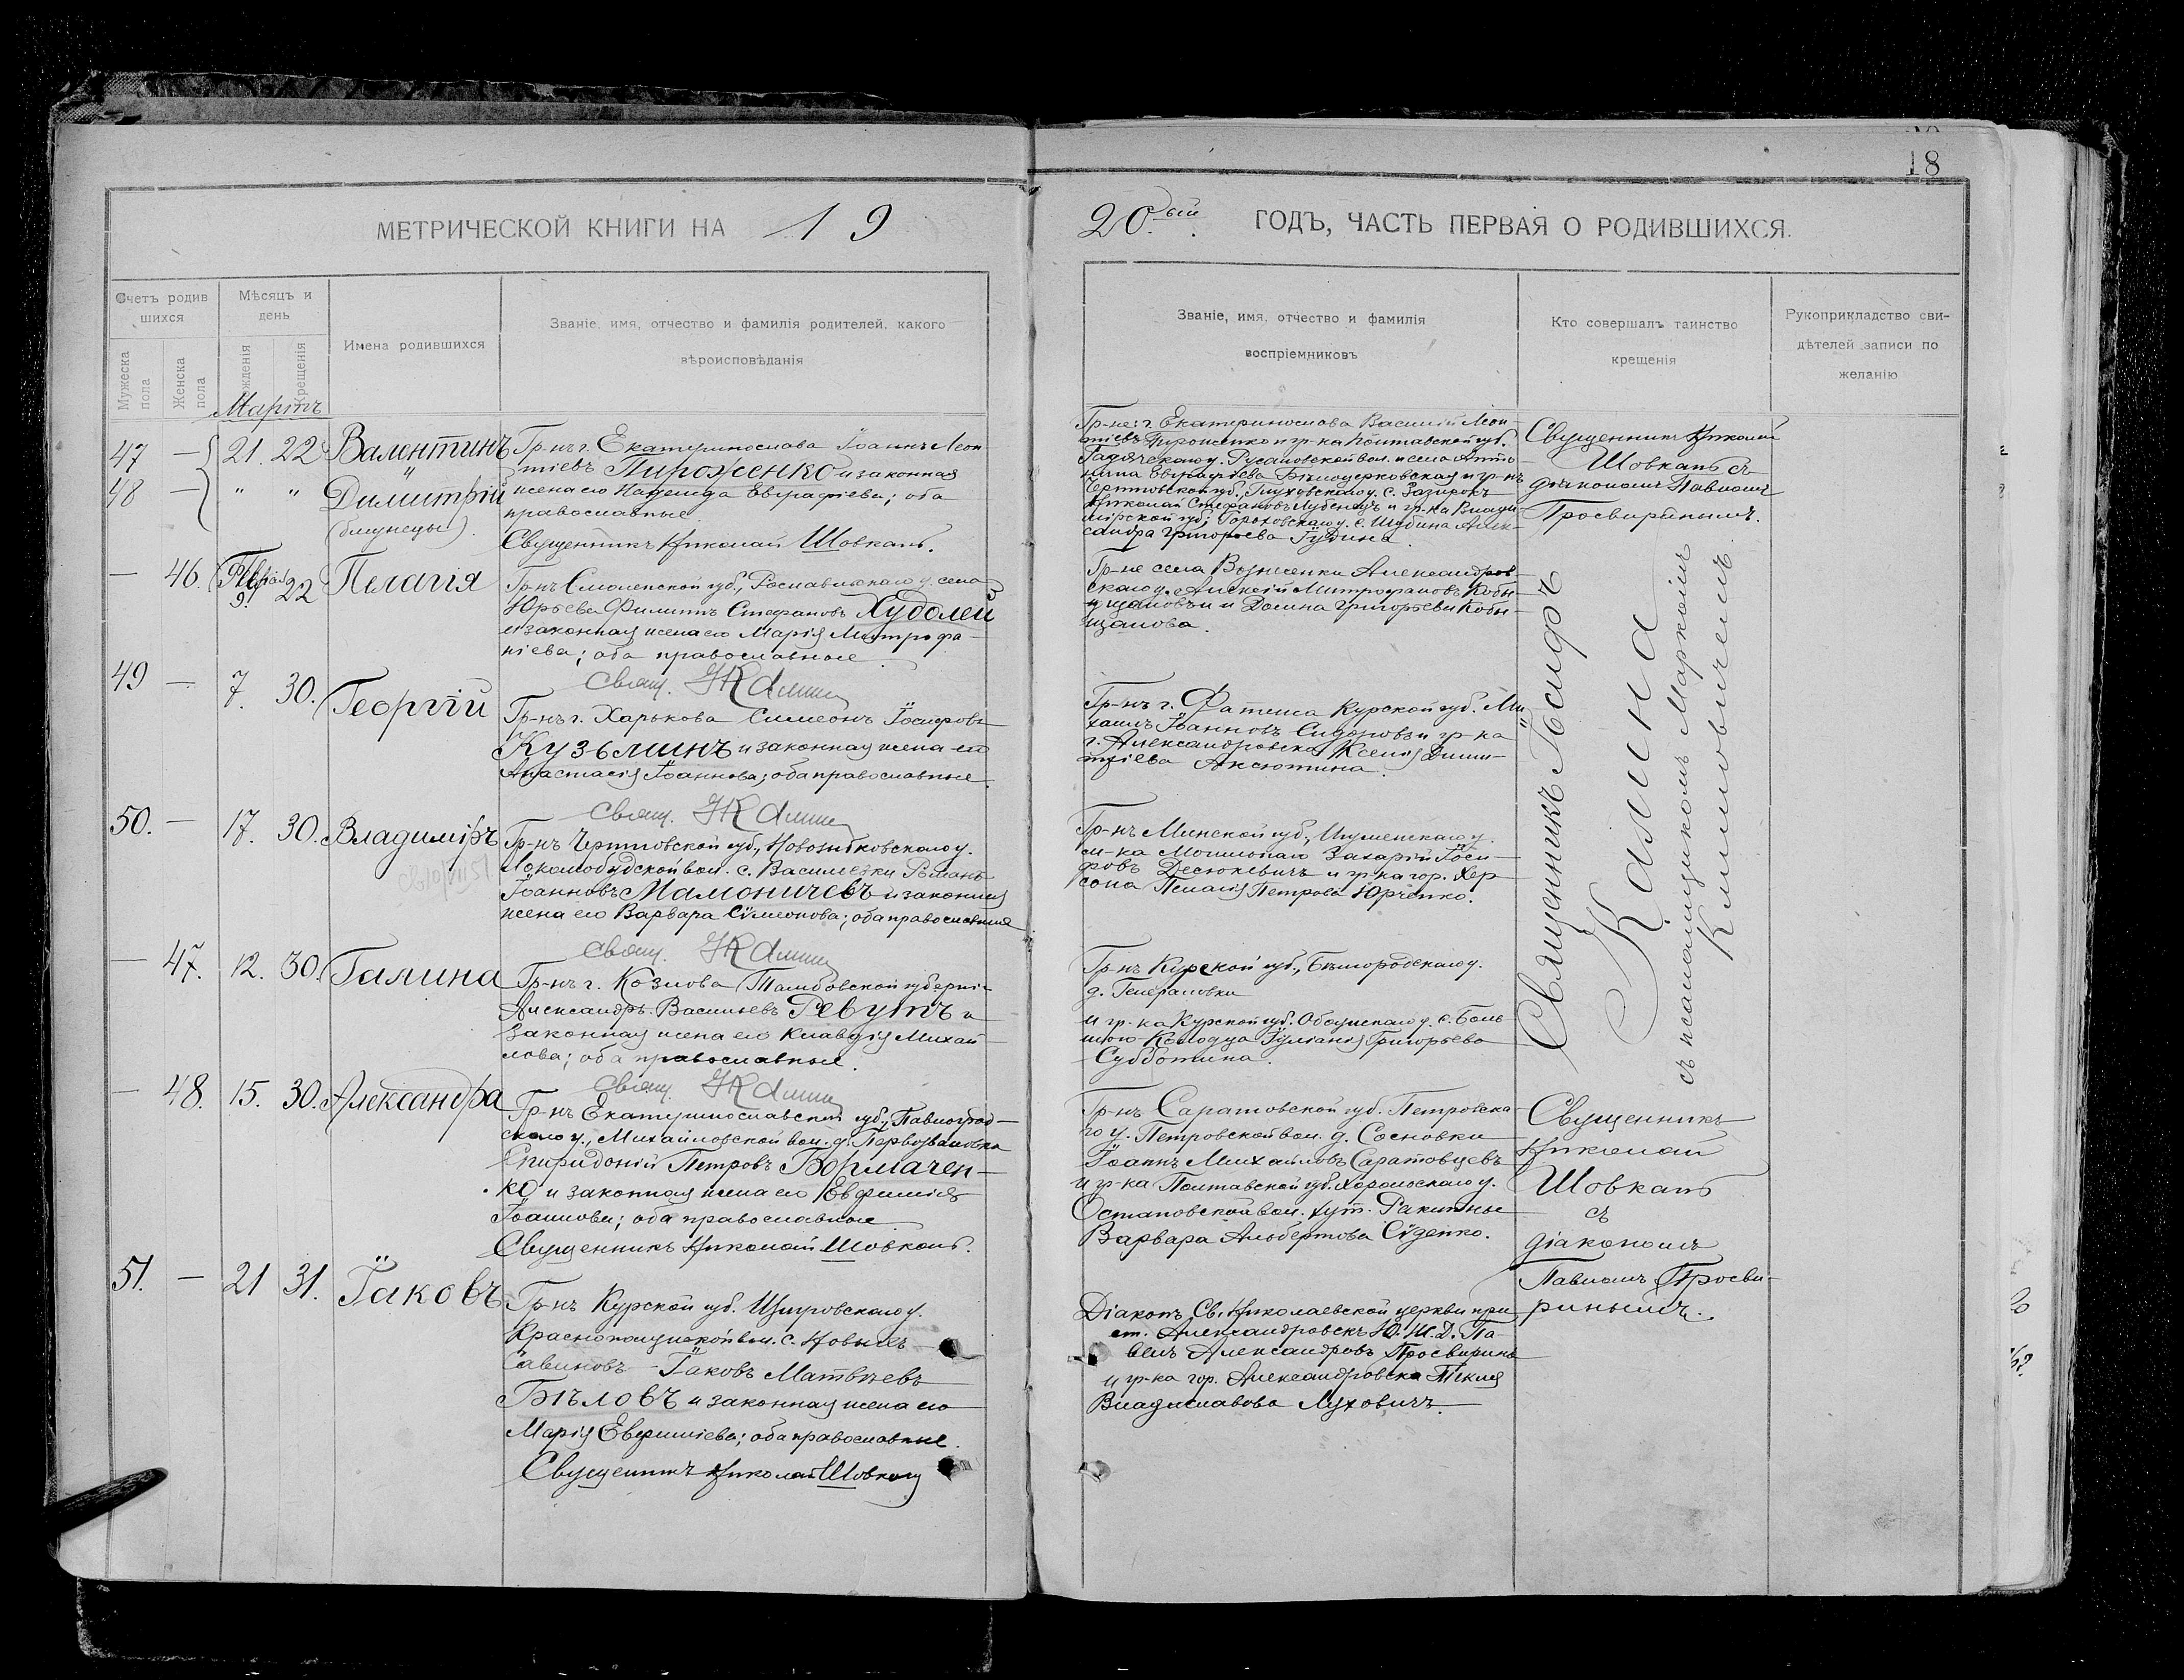 18
МЕТРИЧЕСКОЙ КНИГИ НА 19
20.ый ГОДЪ, ЧАСТЬ ПЕРВАЯ О РОДИВШИХСЯ.
Счетъ родив
шихся
Мужеска
пола
Женска
пола
Мѣсяцъ и
день
рожденія
Крещенія
Имена родившихся
Званіе, имя, отчество и фамилія родителей, какого
вѣроисповѣданія
Званіе, имя, отчество и фамилія
воспріемниковъ
Кто совершалъ таинство
крещенія
Рукоприкладство сви-
дѣтелей записи по
желанію
Мартъ
47 — 21. 22 Валентинъ
48 — " " Димитрій
(близнецы).
Гр-нъ г. Екатеринослава Іоаннъ Леон
тіевъ Пироженко и законная
жена его Надежда Евграфіева; оба
православные
Священникъ Николай Шовкапъ.
Гр-не: г. Екатеринослова Василій Леон-
тіевъ Пироженко и гр-ка Полтавской губ.
Гадячскаго у. Русановской вол. и села Анто-
нина Евграфіева Бѣлоцерковская и гр-нъ
Черниговской губ., Глуховскаго у. с.
Николай Стефановъ и гр-ка Влади-
мірской губ; Гороховскаго у. с. Алек-
сандра Григорьева Гудина.
Священникъ Николай
Шовкапъ съ
діакономъ Павломъ
Просвиринымъ.
— 46. Февраль 9. 22 Пелагія
Гр-нъ Смоленской губ., Рославльскаго у. села
Юрьева Филиппъ Стефановъ Худолей
и законная жена его Марія Митрофа-
ніева; оба православные.
Свящ. Калина
Гр-не села Вознесенки Александров-
скаго у. Алексій Митрофановъ Кобы-
щановъ и и Домна Григорьева Кобы-
щанова.
49 — 7. 30. Георгій
Гр-нъ г. Харькова Симеонъ Іосифовъ
Кузьминъ и законная жена его
Анастасія Іоаннова; оба православные.
Свящ. Калина
Гр-нъ г. Фатежа Курской губ. Ми
хаилъ Іоанновъ Сидоровъ и гр-ка
г. Александровска Ксенія Дими-
тріева Аксютина.
50. — 17. 30. Владиміръ
Гр-нъ Черниговской губ., Новозыбковскаго у.
вол. с. Романъ
Іоанновъ Мамоничевъ и законная
жена его Варвара Сѵмеонова; оба православные
Свящ. Калина
Гр-нъ Минской губ., Игуменскаго у.
м-ка Захарій Іоси-
фовъ Десюкевичъ и гр-ка гор. Хер
сона Пелагія Петрова Юрченко.
— 47. 12. 30. Галина
Гр-нъ г. Козлова Тамбовской губерніи
Александръ Васильевъ Ревутъ и
законная жена его Клавдія Михай-
лова; оба православные.
Свящ. Калина
Гр-нъ Курской губ., Бѣлгородскаго у.
д. Генераловки
и гр-ка Курской губ. Обоянскаго у. с. Боль
шого Колодца Іуліанія Григорьева
Субботина.
Священникъ Іосифъ
Калина
съ псаломщикомъ Маркомъ
Климовичемъ.
— 48. 15. 30. Александра
Гр-нъ Екатеринославской губ., Павлоград-
скаго у., Михайловской вол. д. Первозвановка
Спиридоній Петровъ Бормачен-
ко и законная жена его Евфимія
Іоаннова; оба православные.
Священникъ Николай Шовкапъ.
Гр-нъ Саратовской губ. Петровска-
го у. Петровской вол. д. Сосновки
Іоаннъ Михайловъ Саратовцевъ
и гр-ка Полтавской губ. Хорольскаго у.
Остаповской вол. хут. Ракитные
Варвара Альбертова Сѵденко.
Священникъ
Николай
Шовкапъ
съ
діакономъ
Павломъ Просви-
ринымъ.
51. — 21 31. Іаковъ
Гр-нъ Курской губ. Щигровскаго у.
Краснополянской вол. с. Новыхъ
Савиновъ — Іаковъ Матвѣевъ
Бѣловъ и законная жена его
Марія Евфиміева; оба православные.
Священникъ Николай Шовкапъ
Діаконъ Св. Николаевской церкви при
ст. Александровскъ Ю. Ж. Д. Па-
велъ Александровъ Просвиринъ
и гр-ка гор. Александровска Текля
Владиславова Луховичъ.